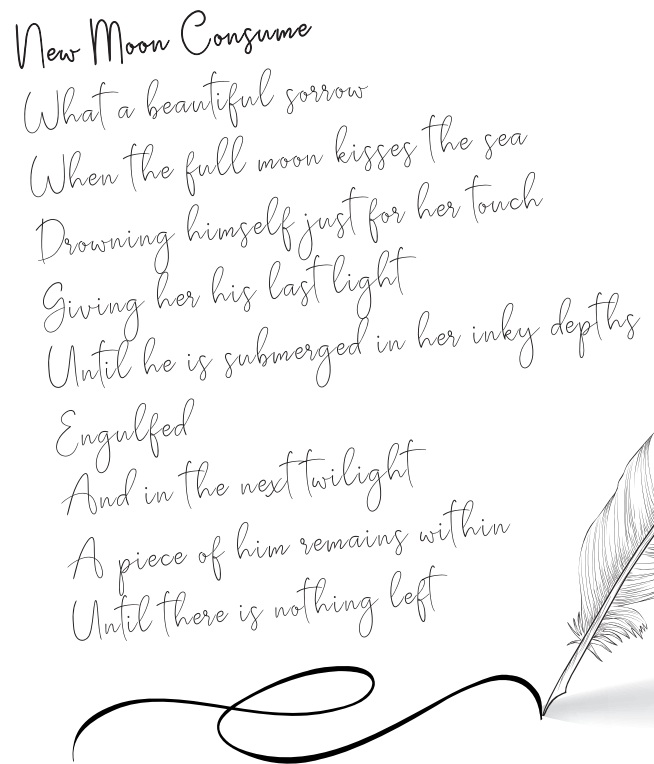 New Moon Consume
What a beautiful sorrow
When the full moon kisses the sea
Drowning himself just for her touch
Giving her his last light
Until he is submerged in her inky depths
Engulfed
And in the next twilight
A piece of him remains within
Until there is nothing left